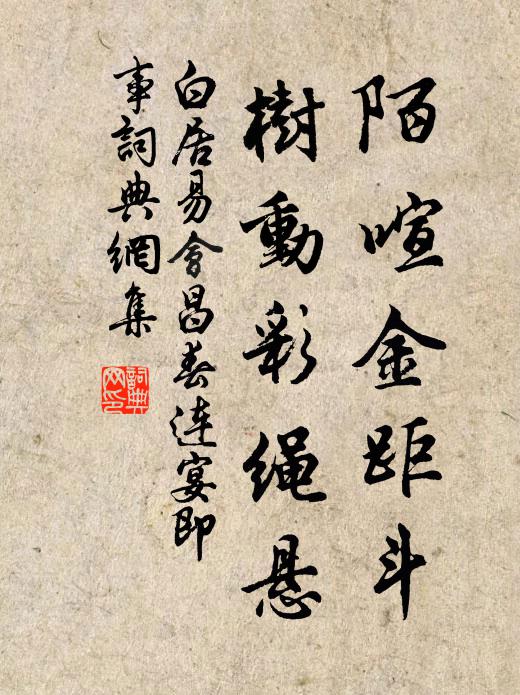 陌喧金距斗
樹動彩绳悬
白居易會昌春连宴即
事詞典網集
詞典
网印